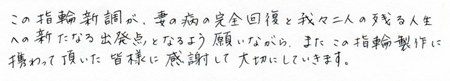 この指輪新調が、妻の病の完全回復と我々二人の残る人生
への新たなる出発点となるよう願いながら、またこの指輪製作に
携わって頂いた皆様に感謝して大切にしていきます。